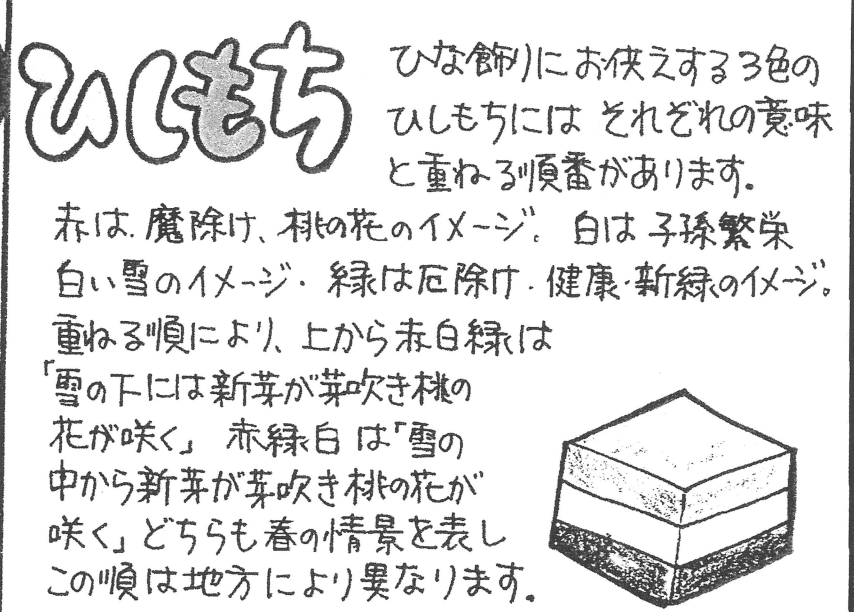 ひしもち
ひな飾りにお供えする3色の
ひしもちには それぞれの意味
と重ねる順番があります。
赤は、魔除け、桃の花のイメージ。 白は 子孫繁栄
白い雪のイメージ・ 緑は厄除け・健康・新緑のイメージ。
重ねる順により、上から赤白緑は
「雪の下には新芽が芽吹き桃の
花が咲く」 赤緑白 は「雪の
中から新芽が芽吹き桃の花が
咲く」どちらも春の情景を表し
この順は地方により異なります。